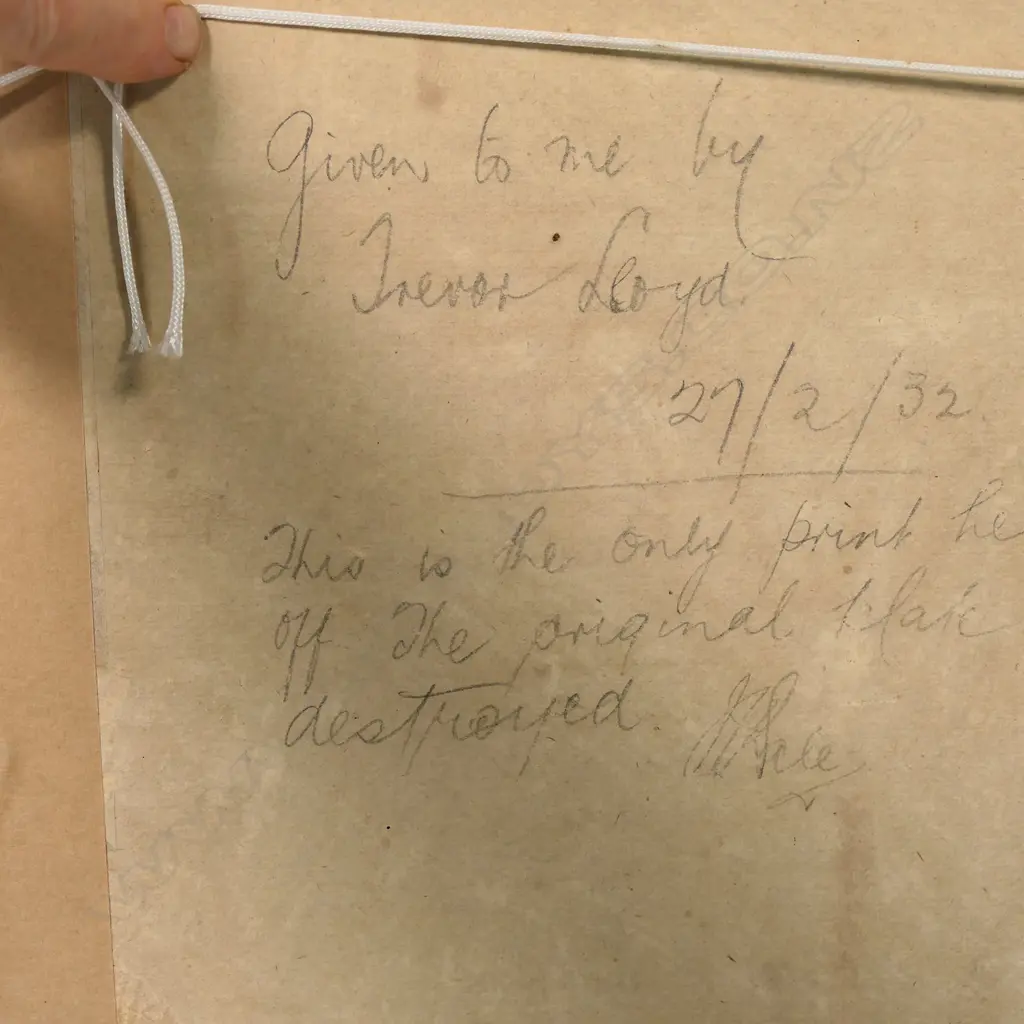 Given to me by
Trevor Lloyd.
27/2/32.
This is the only print he
off the original
destroyed.